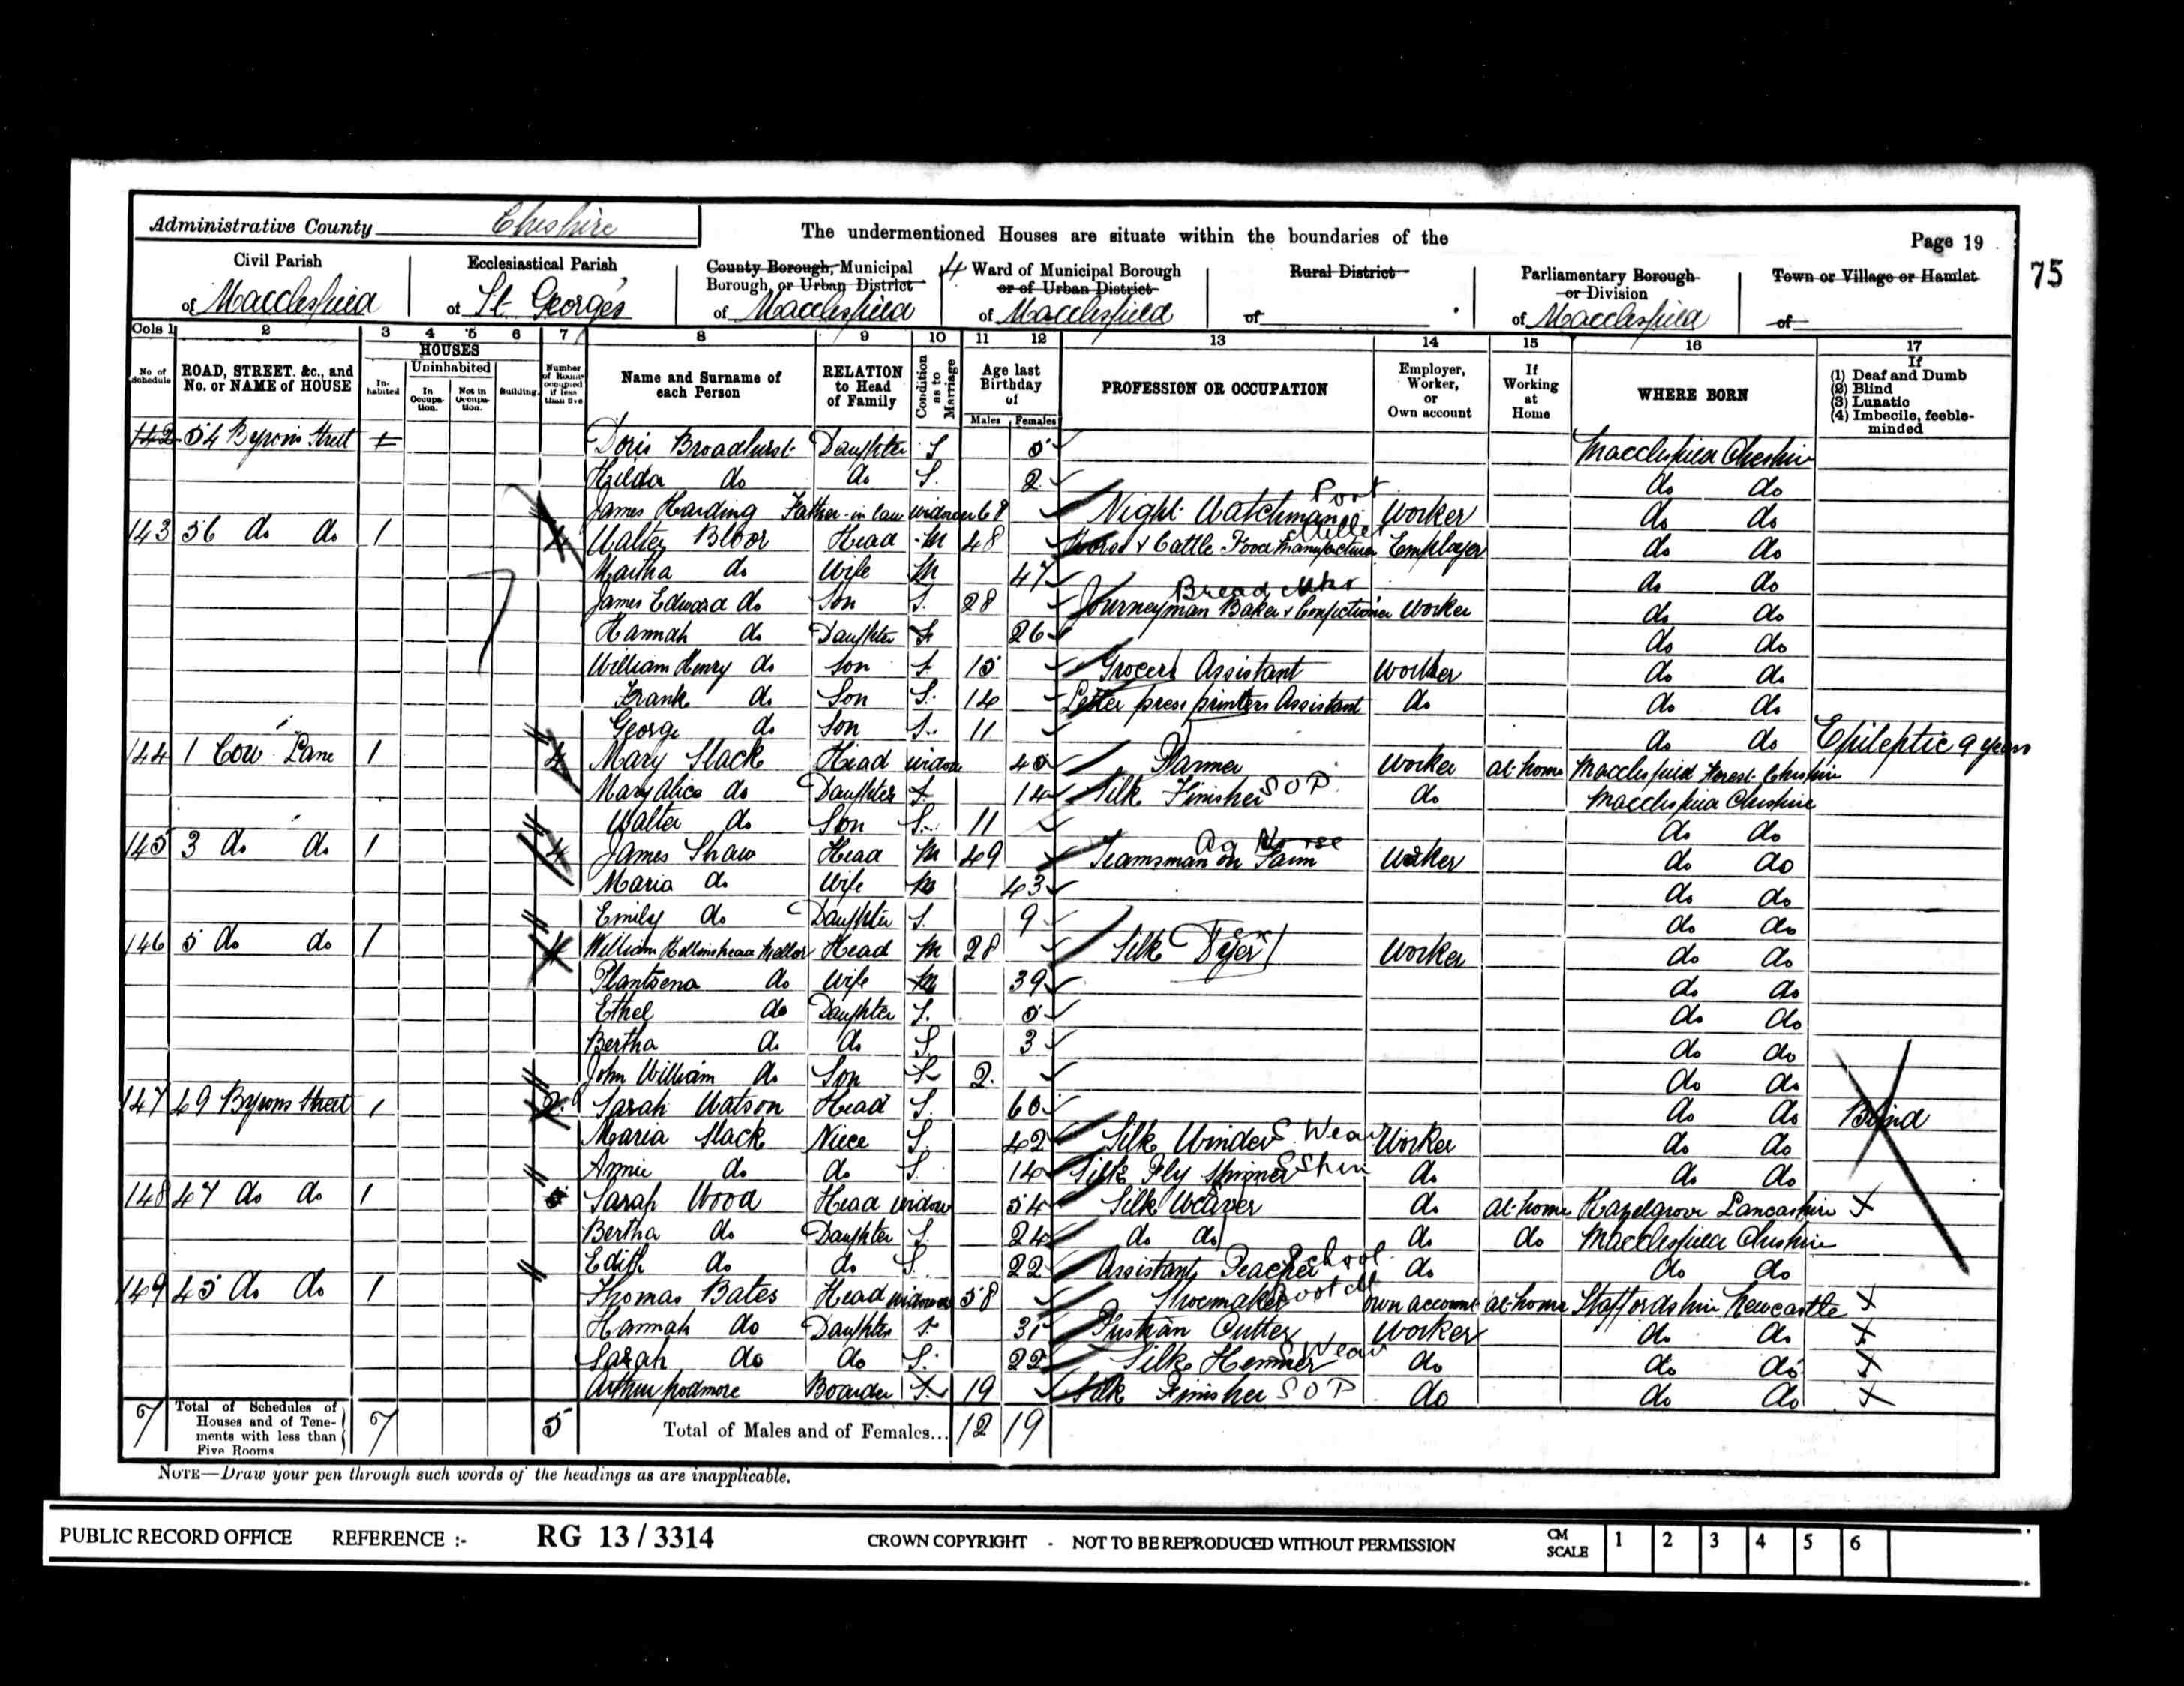 Administrative County Cheshire
The undermentioned Houses are situate within the boundaries of the
Page 19
75
Civil Parish of Macclesfield
Ecclesiastical Parish of St. George's
County Borough, Municipal Borough, or Urban District of Macclesfield
4 Ward of Municipal Borough or of Urban District of Macclesfield
Rural District of
Parliamentary Borough or Division of Macclesfield
Town or Village or Hamlet of
Cols 1 2 3 4 5 6 7 8 9 10 11 12 13 14 15 16 17
No of Schedule
ROAD, STREET, &c., and No. or NAME of HOUSE
HOUSES
Inhabited
Uninhabited
In Occupation.
Not in Occupation.
Building.
Number of Rooms occupied if less than five
Name and Surname of each Person
RELATION to Head of Family
Condition as to Marriage
Age last Birthday of
Males Females
PROFESSION OR OCCUPATION
Employer, Worker, or Own account
If Working at Home
WHERE BORN
If
(1) Deaf and Dumb
(2) Blind
(3) Lunatic
(4) Imbecile, feeble-minded
142 54 Byrons Street 1 Doris Broadhurst Daughter S 5 Macclesfield Cheshire
Hilda do do S. 2 do do
James Harding Father-in-law widower 68 Night Watchman Worker do do
143 56 do do 1 4 Walter Bloor Head M 48 Horse & Cattle Food Manufacturer Miller Employer do do
Martha do Wife M 47 do do
James Edward do Son S. 28 Journeyman Baker & Confectioner Bread Mkr Worker do do
Hannah do Daughter S 26 do do
William Henry do Son S 15 Grocers Assistant Worker do do
Frank do Son S. 14 Letter press printers Assistant do do do
George do Son S. 11 do do Epileptic 9 years
144 1 Cow Lane 1 4 Mary Slack Head widow 45 Farmer Worker at home Macclesfield Forest Cheshire
Mary Alice do Daughter S 14 Silk Finisher S O P do Macclesfield Cheshire
Walter do Son S. 11 do do
145 3 do do 1 4 James Shaw Head M 49 Teamsman on Farm Worker do do
Maria do Wife M 43 do do
Emily do Daughter S. 9 do do
146 5 do do 1 4 William Hollinshead Mellor Head M 28 Silk Dyer Worker do do
Plantsena do Wife M 39 do do
Ethel do Daughter S. 5 do do
Bertha do do S 3 do do
John William do Son S 2. do do
147 49 Byrons Street 1 2 Sarah Watson Head S. 60 do do Blind
Maria Slack Niece S. 42 Silk Winder S Weav Worker do do
Annie do do S. 14 Silk Fly Spinner S Spin do do do
148 47 do do 1 5 Sarah Wood Head widow 54 Silk Weaver do at home Hazelgrove Lancashire X
Bertha do Daughter S. 24 do do do do Macclesfield Cheshire
Edith do do S 22 Assistant Teacher School do do do
149 45 do do 1 Thomas Bates Head widower 58 Shoemaker Boot Own account at home Staffordshire Newcastle X
Hannah do Daughter S. 31 Fustian Cutter Worker do do X
Sarah do do S. 22 Silk Hemmer S Weav do do do X
Arthur Podmore Boarder S. 19 Silk Finisher S O P do do do X
7 Total of Schedules of Houses and of Tenements with less than Five Rooms 7 5 Total of Males and of Females... 12 19
NOTE—Draw your pen through such words of the headings as are inapplicable.
PUBLIC RECORD OFFICE REFERENCE :- RG 13 / 3314 CROWN COPYRIGHT - NOT TO BE REPRODUCED WITHOUT PERMISSION CM SCALE 1 2 3 4 5 6